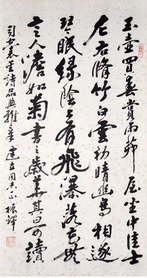 玉壺買春賞雨茆屋坐中佳士
左右脩竹白雲初晴幽鳥相逐
琴眠綠陰上有飛瀑落花無
言人澹如菊書之歲華其曰可讀
司空表聖詩品典雅